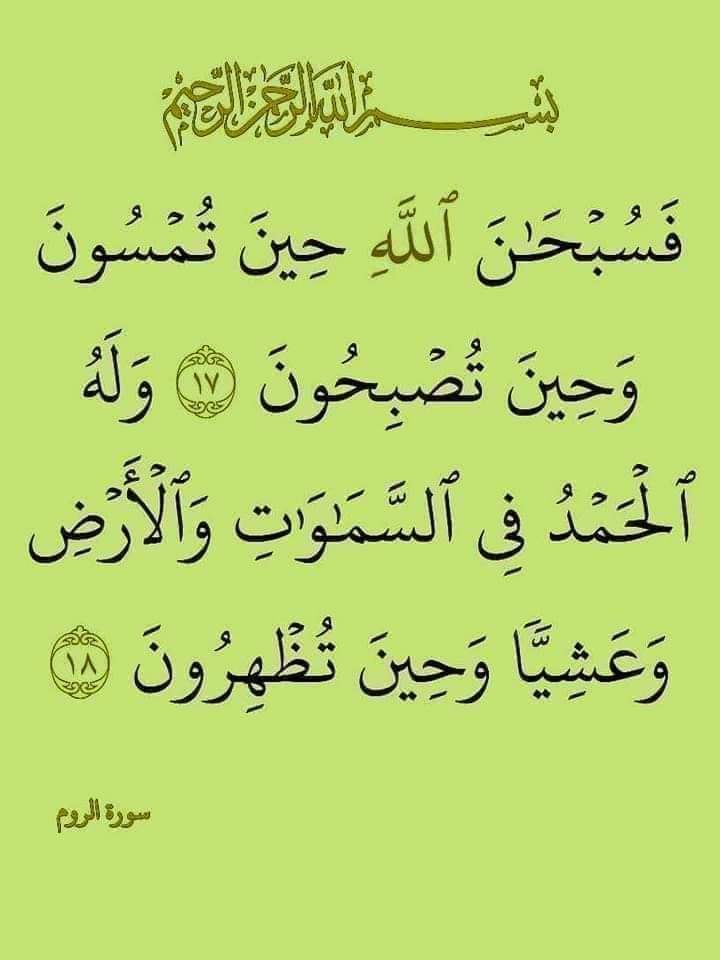 بسم الله الرحمن الرحيم
فَسُبْحَـٰنَ ٱللَّهِ حِينَ تُمْسُونَ
وَحِينَ تُصْبِحُونَ ١٧ وَلَهُ
ٱلْحَمْدُ فِى ٱلسَّمَـٰوَٰتِ وَٱلْأَرْضِ
وَعَشِيًّا وَحِينَ تُظْهِرُونَ ١٨
سورة الروم